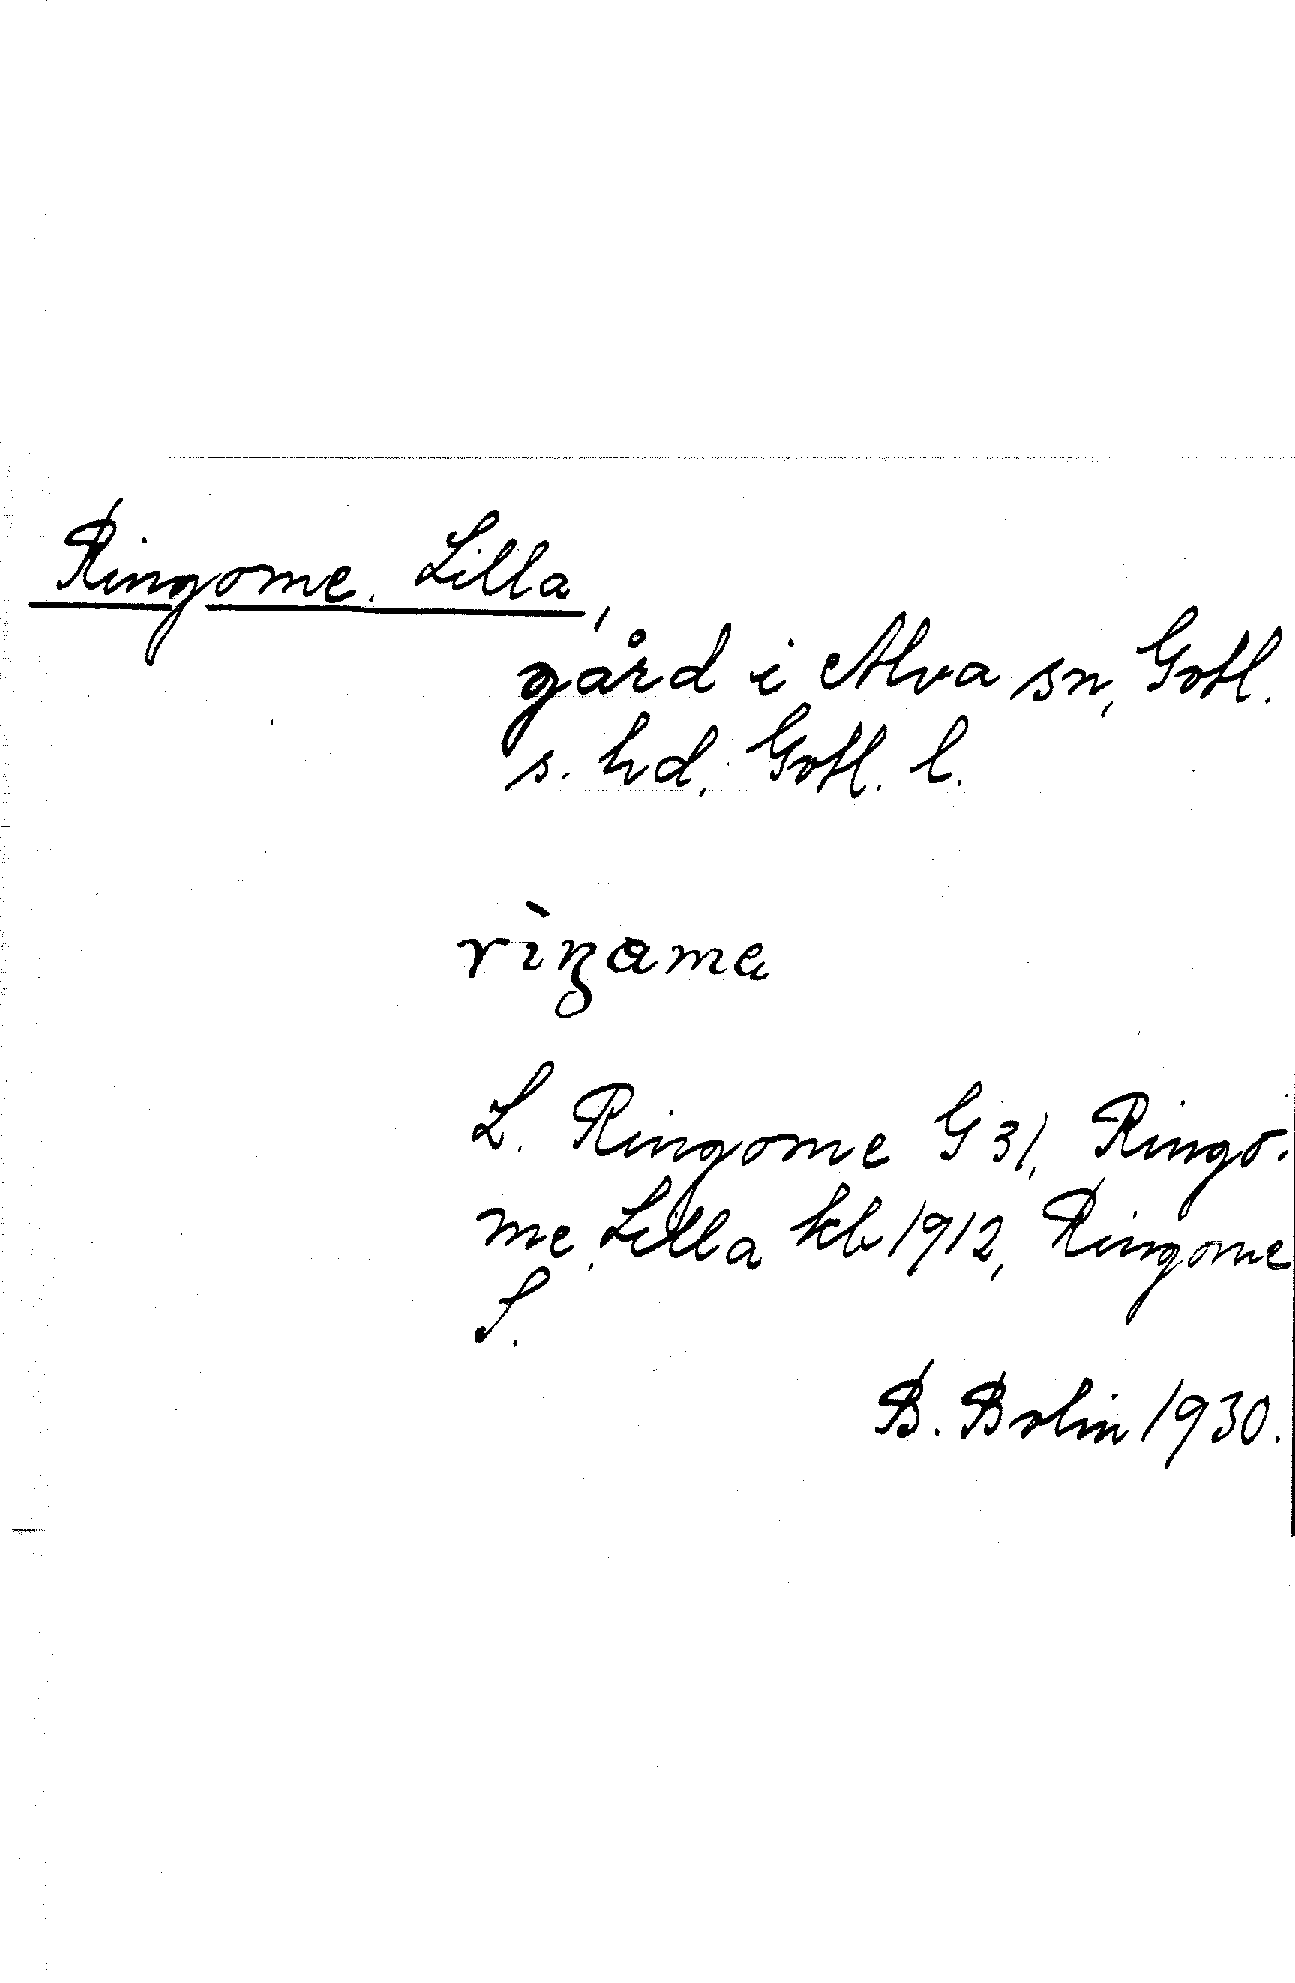 Ringome. Lilla,
gård i Alva sn, Gotl.
s. hd, Gotl. l.
L. Ringome G 31, Ringo-
me, Lilla kb 1912, Ringome
S.
B. Bolin 1930.